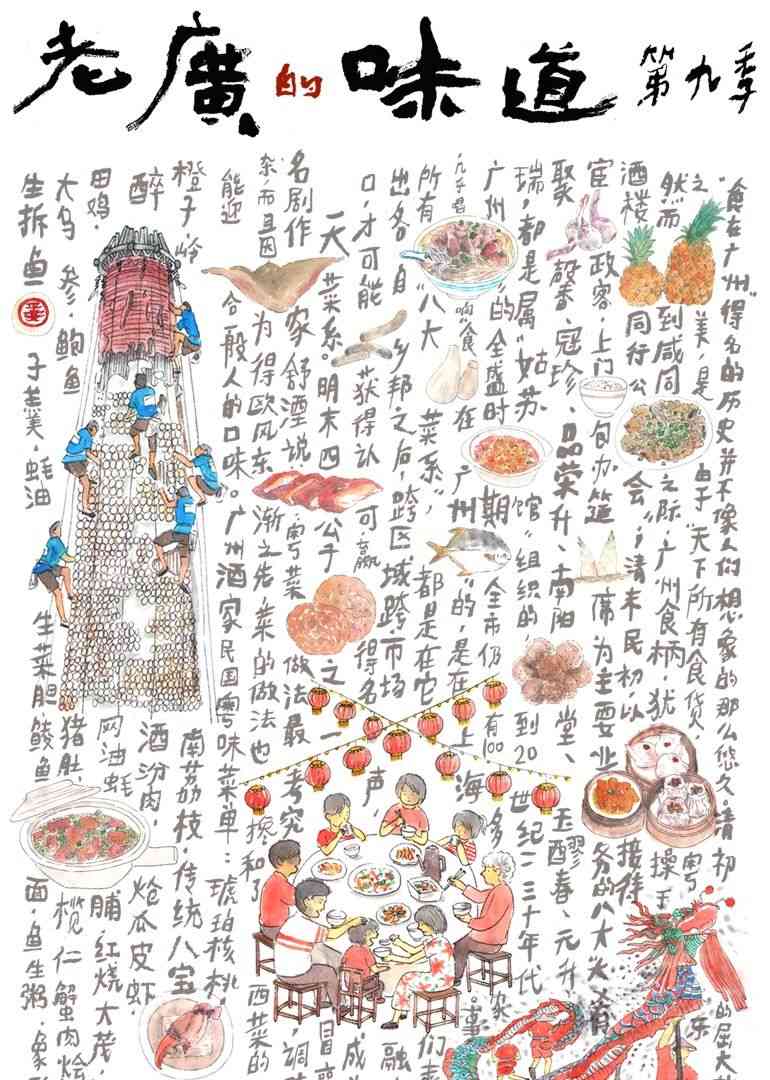 老廣的味道
第九季
“食在广州”得名的历史并不像人们想象的那么悠久。清初 的屈大
之美,是由于“天下所有食货 粤 东
然而 到咸同之际,广州食柄,犹操于
酒楼 同行公会”,清末民初,以接待
宦 政客,上门包办筵席为主要业务的八大
聚馨、冠珍、品荣升、南阳堂、玉醪春、元升
瑞,都是属“姑苏馆”组织的,到20世纪二三十年代
广州”的全盛时期 全市仍有100多家
响“食在广州”的,是在上海。事
所有“八大菜系”,都是在它们
出各自乡邦之后,跨区域跨市场 融
口,才可能获得认可,赢得名声, 成
一大菜系。明末四公子之一冒
名剧作家舒湮说:粤菜做法最考究 调
杂,而且因为得欧风东渐之先,菜的做法也掺和了西菜的
能迎合一般人的口味。广州酒家民国粤味菜单:琥珀核桃,
橙子,岭南荔枝,传统八宝
醉 酒汾肉,炝瓜皮虾,
田鸡, 网油蚝脯,红烧大茂,
大乌参,鲍鱼 猪肚,榄仁蟹肉烩
生拆鱼子羹,蚝油生菜胆鲮鱼面,鱼生粥,象